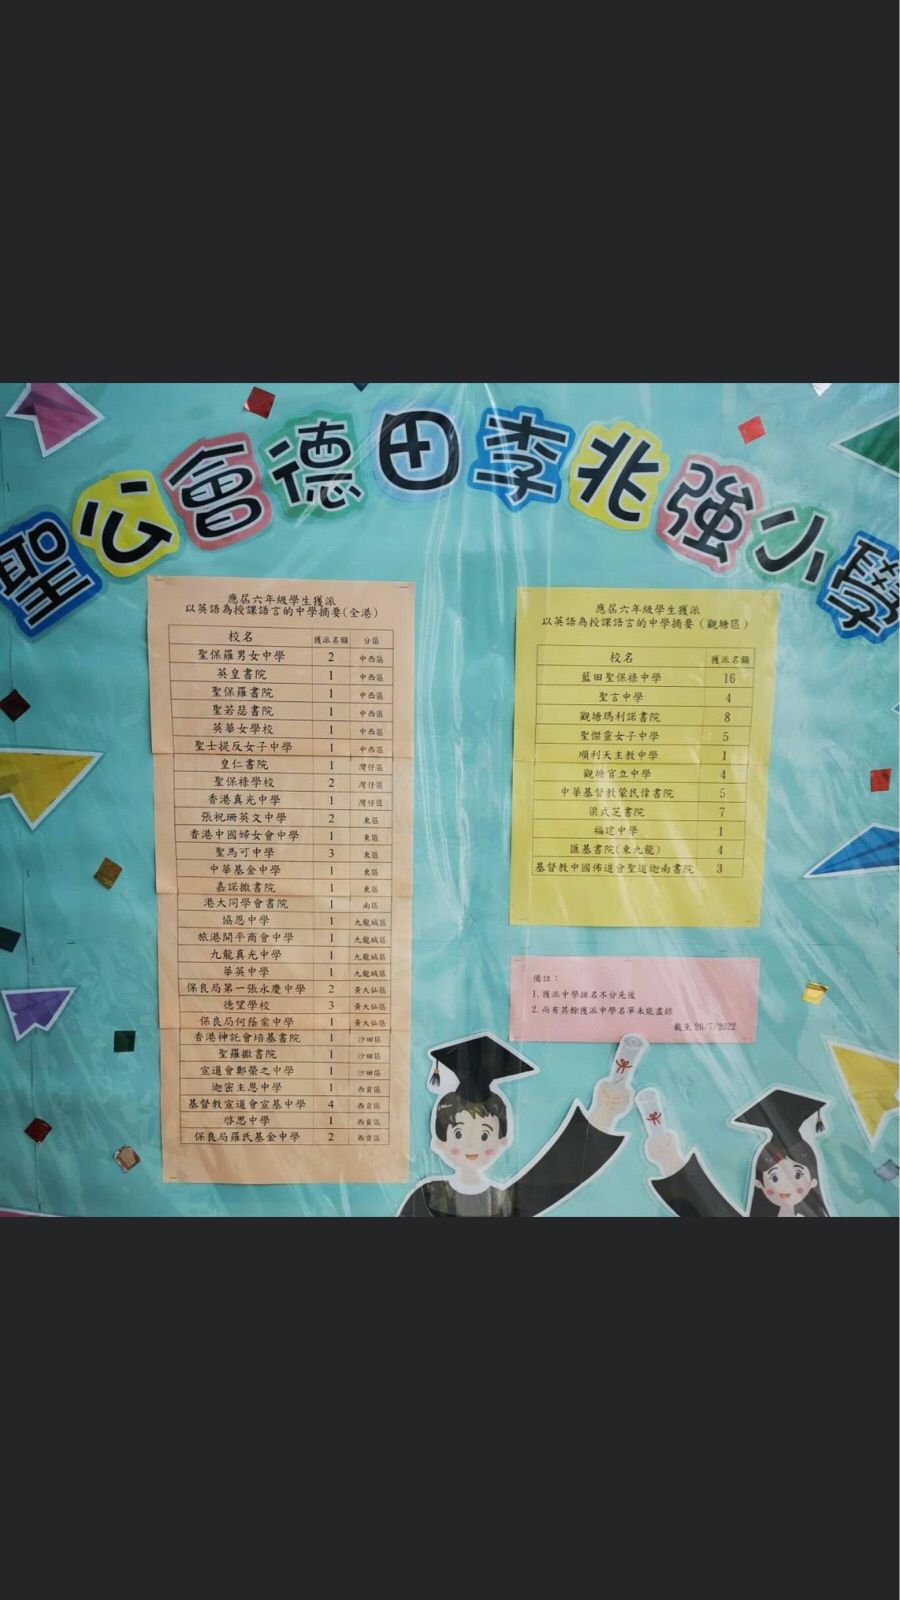 聖公會德田李兆強小學
應屆六年級學生獲派
以英語為授課語言的中學摘要(全港)
校名 獲派名額 分區
聖保羅男女中學 2 中西區
英皇書院 1 中西區
聖保羅書院 1 中西區
聖若瑟書院 1 中西區
英華女學校 1 中西區
聖士提反女子中學 1 中西區
皇仁書院 1 灣仔區
聖保祿學校 2 灣仔區
香港真光中學 1 灣仔區
張祝珊英文中學 2 東區
香港中國婦女會中學 1 東區
聖馬可中學 3 東區
中華基金中學 1 東區
嘉諾撒書院 1 東區
港大同學會書院 1 南區
協恩中學 1 九龍城區
旅港開平商會中學 1 九龍城區
九龍真光中學 1 九龍城區
華英中學 1 九龍城區
保良局第一張永慶中學 2 黃大仙區
德望學校 3 黃大仙區
保良局何蔭棠中學 1 黃大仙區
香港神託會培基書院 1 沙田區
聖羅撒書院 1 沙田區
宣道會鄭榮之中學 1 沙田區
迦密主恩中學 1 西貢區
基督教宣道會宣基中學 4 西貢區
啓思中學 1 西貢區
保良局羅氏基金中學 2 西貢區
應屆六年級學生獲派
以英語為授課語言的中學摘要(觀塘區)
校名 獲派名額
藍田聖保祿中學 16
聖言中學 4
觀塘瑪利諾書院 8
聖傑靈女子中學 5
順利天主教中學 1
觀塘官立中學 4
中華基督教會蒙民偉書院 5
梁式芝書院 7
福建中學 1
匯基書院(東九龍) 4
基督教中國佈道會聖道迦南書院 3
備註：
1. 獲派中學排名不分先後
2. 尚有其餘獲派中學名單未能盡錄
截至 26/7/2022